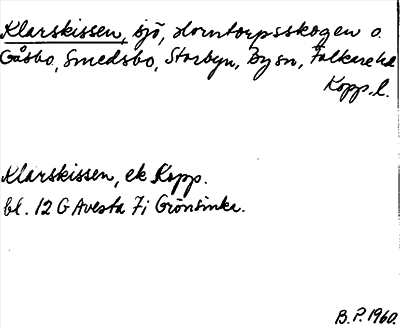 Klarskissen, sjö, Horntorpsskogen o.
Gåsbo, Smedsbo, Storbyn, Bysn, Folkare hd
Kopp. l.
Klarskissen, ek Kopp.
bl. 12 G Avesta 7i Grönsinka.
B. P. 1960.